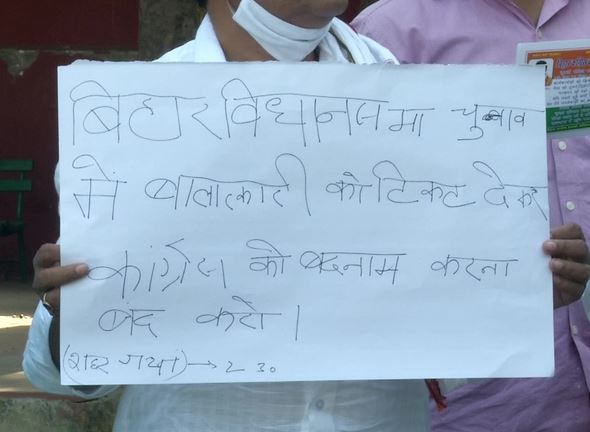 बिहार विधानसभा चुनाव
में बालात्कारी को टिकट देकर
कांग्रेस को बदनाम करना
बंद करो।
(शहर गया) → 230